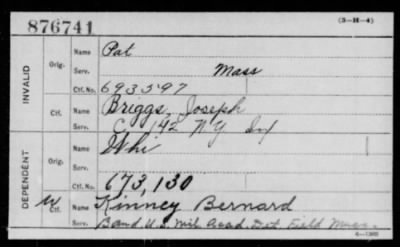 876741 (3-H-4)
INVALID
Orig. Name Pat
Serv. Mass
Ctf. No. 693597
Ctf. Name Briggs, Joseph
Serv. C. 142 N.Y. Inf
DEPENDENT
Orig. Name Whi
Serv.
Ctf. No. 673,130
W Ctf. Name Kinney Bernard
Serv. Band, U.S. Mil. Acad. Det. Field Music.